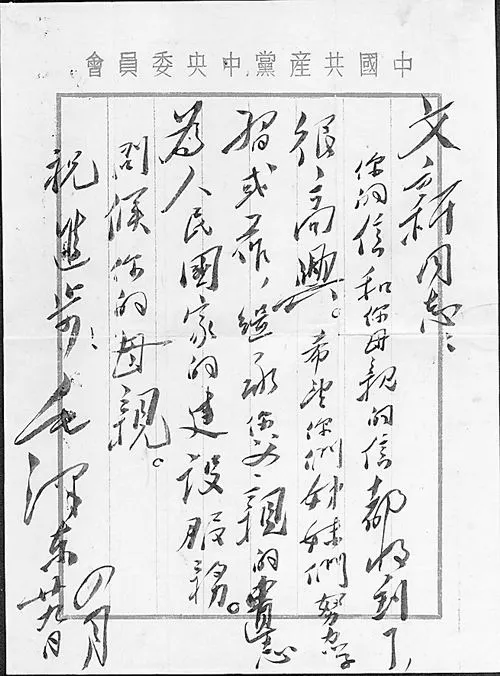 中國共産黨中央委員會
文新同志：
你的信和你母親的信都收到了，
很高興。希望你們姊妹們努力学
習或工作，繼承你父親的遺志，
為人民國家的建設服務。
問候你的母親。
祝進步！
毛澤东
四月
廿九日